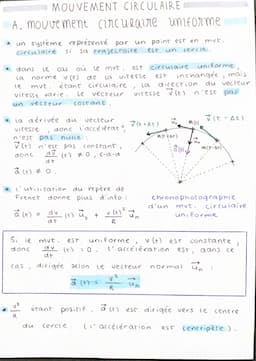 MOUVEMENT CIRCULAIRE
A. mouvement circulaire uniforme
• un système représenté par un point est en mvt.
circulaire si sa trajectoire est un cercle.
• dans le cas où le mvt. est circulaire uniforme,
la norme v(t) de la vitesse est inchangée, mais
le mvt. étant circulaire, la direction du vecteur
vitesse varie. Le vecteur vitesse v⃗(t) n'est pas
un vecteur constant.
• la dérivée du vecteur
vitesse, donc l'accélérat°,
n'est pas nulle:
v⃗(t) n'est pas constant,
donc dv⃗/dt (t) ≠ 0, c-à-d
a⃗(t) ≠ 0.
v⃗(t+Δt)
v⃗(t-Δt)
M(t)
a⃗(t)
• L'utilisation du repère de
Frenet donne plus d'info:
a⃗(t) = dv/dt (t) u⃗t + v(t)²/R u⃗n
chronophotographie
d'un mvt. circulaire
uniforme
Si le mvt. est uniforme, v(t) est constante;
donc dv/dt (t) = 0. L'accélération est, dans ce
cas, dirigée selon le vecteur normal u⃗n:
a⃗(t) = v²/R u⃗n
• v²/R étant positif, a⃗(t) est dirigée vers le centre
du cercle (l'accélération est centripète).